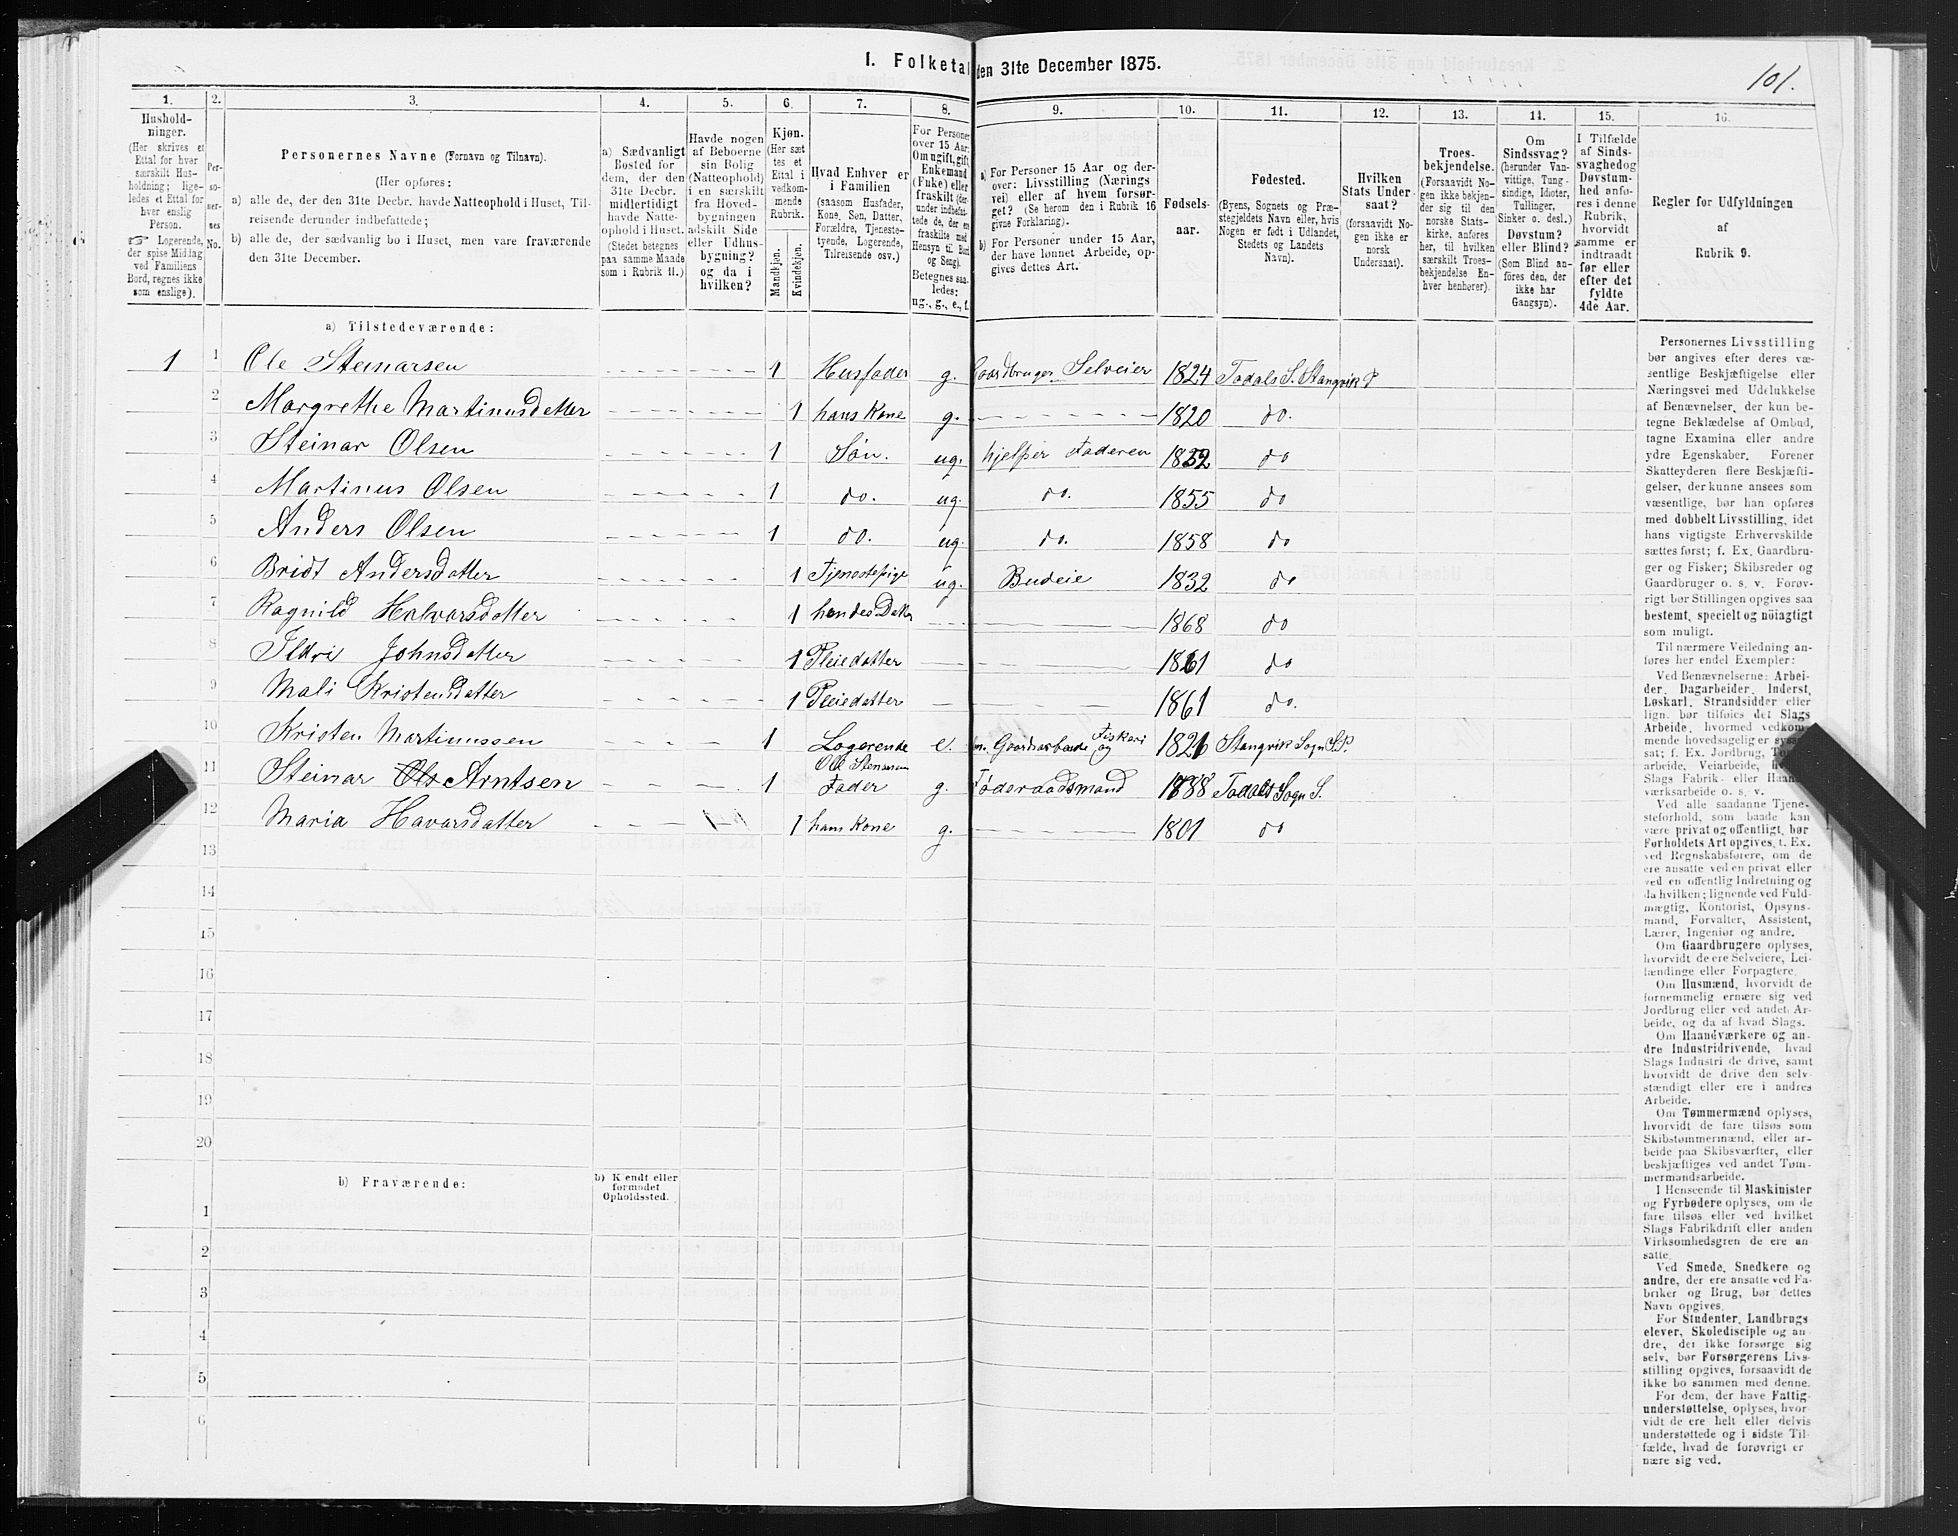 1. Folketal den 31te December 1875.
101.
1.
2.
3.
4.
5.
6.
7.
8.
9.
10.
11.
12.
13.
14.
15.
16.
Hushold-
ninger.
(Her skrives et
Ettal for hver
særskilt Hus-
holdning; lige-
ledes et Ettal for
hver enslig
Person.
☞ Logerende,
der spise Middag
ved Familiens
Bord, regnes ikke
som enslige).
Per-
so-
ner-
nes
No.
Personernes Navne (Fornavn og Tilnavn).
(Her opføres:
a) alle de, der den 31te Decbr. havde Natteophold i Huset, Til-
reisende derunder indbefattede;
b) alle de, der sædvanlig bo i Huset, men vare fraværende
den 31te December.
a) Sædvanligt
Bosted for
dem, der den
31te Decbr.
midlertidigt
havde Natte-
ophold i Huset.
(Stedet betegnes
paa samme Maade
som i Rubrik 11.)
Havde nogen
af Beboerne
sin Bolig
(Natteophold)
i en særskilt
fra Hoved-
bygningen
adskilt Side
eller Udhus-
bygning?
og da i
hvilken?
Kjøn.
(Her sæt
tes et
Ettal i
vedkom-
mende
Rubrik.
Mandkjøn.
Kvindekjøn.
Hvad Enhver er
i Familien
(saasom Husfader,
Kone, Søn, Datter,
Forældre, Tjeneste-
tyende, Logerende,
Tilreisende osv.)
For Personer
over 15 Aar:
Om ugift, gift,
Enkemand
(Enke) eller
fraskilt (der-
under indbefat-
tede de, der ere
fraskilte med
Hensyn til Bord
og Seng).
Betegnes saa-
ledes:
ug., g., e., f.
a) For Personer 15 Aar og der-
over: Livsstilling (Nærings
vei) eller af hvem forsør-
get? (Se herom den i Rubrik 16
givne Forklaring).
b) For Personer under 15 Aar,
der have lønnet Arbeide, op-
gives dettes Art.
Fødsels-
aar.
Fødested.
(Byens, Sognets og Præ-
stegjeldets Navn eller, hvis
Nogen er født i Udlandet,
Stedets og Landets
Navn).
Hvilken
Stats Under-
saat?
(forsaavidt No-
gen ikke er
norsk
Undersaat).
Troes-
bekjendelse.
(Forsaavidt No-
gen ikke bekjen-
der sig til den
norske Stats-
kirke, anføres
her, til hvilken
særskilt Troes-
bekjendelse En-
hver henhører).
Om
Sindssvag?
(herunder Van-
vittige, Tung-
sindige, Idioter,
Tullinger,
Sinker o. desl.)
Døvstum?
eller Blind?
(Som Blind an-
føres den, der
ikke har
Gangsyn).
I Tilfælde
af Sinds-
svaghed og
Døvstum-
hed anfø-
res i denne
Rubrik,
hvorvidt
samme er
indtraadt
før eller
efter det
fyldte
4de Aar.
Regler for Udfyldningen
af
Rubrik 9.
a) Tilstedeværende:
1 1 Ole Steinarsen 1 Husfader g. Gaardbruger Selveier 1824 Todals S. Stangvik P
2 Margrethe Martinusdatter 1 hans Kone g. 1820 do.
3 Steinar Olsen 1 Søn. ug. hjelper Faderen 1852 do
4 Martinus Olsen 1 do. ug. do. 1855 do
5 Anders Olsen 1 do. ug. do. 1858 do
6 Bridt Andersdatter 1 Tjenestepige ug. Budeie 1832 do
7 Ragnild Halvarsdatter 1 hendes Datter 1868 do
8 Ildri Johnsdatter 1 Pleiedatter 1861 do
9 Mali Kristensdatter 1 Pleiedatter 1861 do.
10 Kristen Martinussen 1 Logerende e. Gaardsarbeide og Fiskeri 1826 Stangvik Sogn S.P.
11 Steinar Ols Arntsen 1 Ole Steinarsens Fader g. Føderaadsmand 1788 Todals Sogn S.
12 Maria Havarsdatter 1 hans Kone g. 1801 do
13
14
15
16
17
18
19
20
b) Fraværende:
b) Kjendt eller
formodet
Opholdssted.
1
2
3
4
5
6
Personernes Livsstilling
bør angives efter deres væ-
sentlige Beskjæftigelse eller
Næringsvei med Udelukkelse
af Benævnelser, der kun be-
tegne Beklædelse af Ombud,
tagne Examina eller andre
ydre Egenskaber. Forener
Skatteyderen flere Beskjæfti-
gelser, der kunne ansees som
væsentlige, bør han opføres
med dobbelt Livsstilling, idet
hans vigtigste Erhvervskilde
sættes først; f. Ex. Gaardbru-
ger og Fisker; Skibsreder og
Gaardbruger o. s. v. Forøv-
rigt bør Stillingen opgives saa
bestemt, specielt og nöiagtigt
som muligt.
Til nærmere Veiledning an-
føres her endel Exempler:
Ved Benævnelserne: Arbei-
der, Dagarbeider, Inderst,
Løskarl, Strandsidder eller
lign. bør tilføies det Slags
Arbeide, hvormed vedkom-
mende hovedsagelig er syssel-
sat; f. Ex. Jordbrug,
arbeide, Veiarbeide,
Slags Fabrik- eller Haand-
værksarbeide o. s. v.
Ved alle saadanne Tjene-
steforhold, som baade kan
være privat og offentligt, bør
Forholdets Art opgives, t. Ex.
ved Regnskabsførere, om de
ere ansatte ved en privat eller
ved en offentlig Indretning og
da hvilken; lignende ved Fuld-
mægtig, Kontorist, Opsyns-
mand, Forvalter, Assistent,
Lærer, Ingeniør og andre.
Om Gaardbrugere oplyses,
hvorvidt de ere Selveiere, Lei-
lændinge eller Forpagtere.
Om Husmænd, hvorvidt de
fornemmelig ernære sig ved
Jordbrug eller ved andet Ar-
beide, og da af hvad Slags.
Om Haandværkere og an-
dre Industridrivende, hvad
Slags Industri de drive, samt
hvorvidt de drive den selv-
stændigt eller ere i andres
Arbeide.
Om Tømmermænd oplyses,
hvorvidt de fare tilsøs som
Skibstømmermænd, eller ar-
beide paa Skibsværfter, eller
beskjæftiges ved andet Tøm-
mermandsarbeide.
I Henseende til Maskinister
og Fyrbødere oplyses, om de
fare tilsøs eller ved hvilket
Slags Fabrikdrift eller anden
Virksomhedsgren de ere an-
satte.
Ved Smede, Snedkere og
andre, der ere ansatte ved Fa-
briker og Brug, bør dettes
Navn opgives.
For Studenter, Landbrugs
elever, Skoledisciple og an-
dre, der ikke forsørge sig
selv, bør Forsørgerens Livs-
stilling opgives, forsaavidt de
ikke bo sammen med denne.
For dem, der have Fattig-
understøttelse, oplyses, hvor-
vidt de ere helt eller delvis
understøttede og i sidste Til-
fælde, hvad de forøvrigt er
nære sig ved.